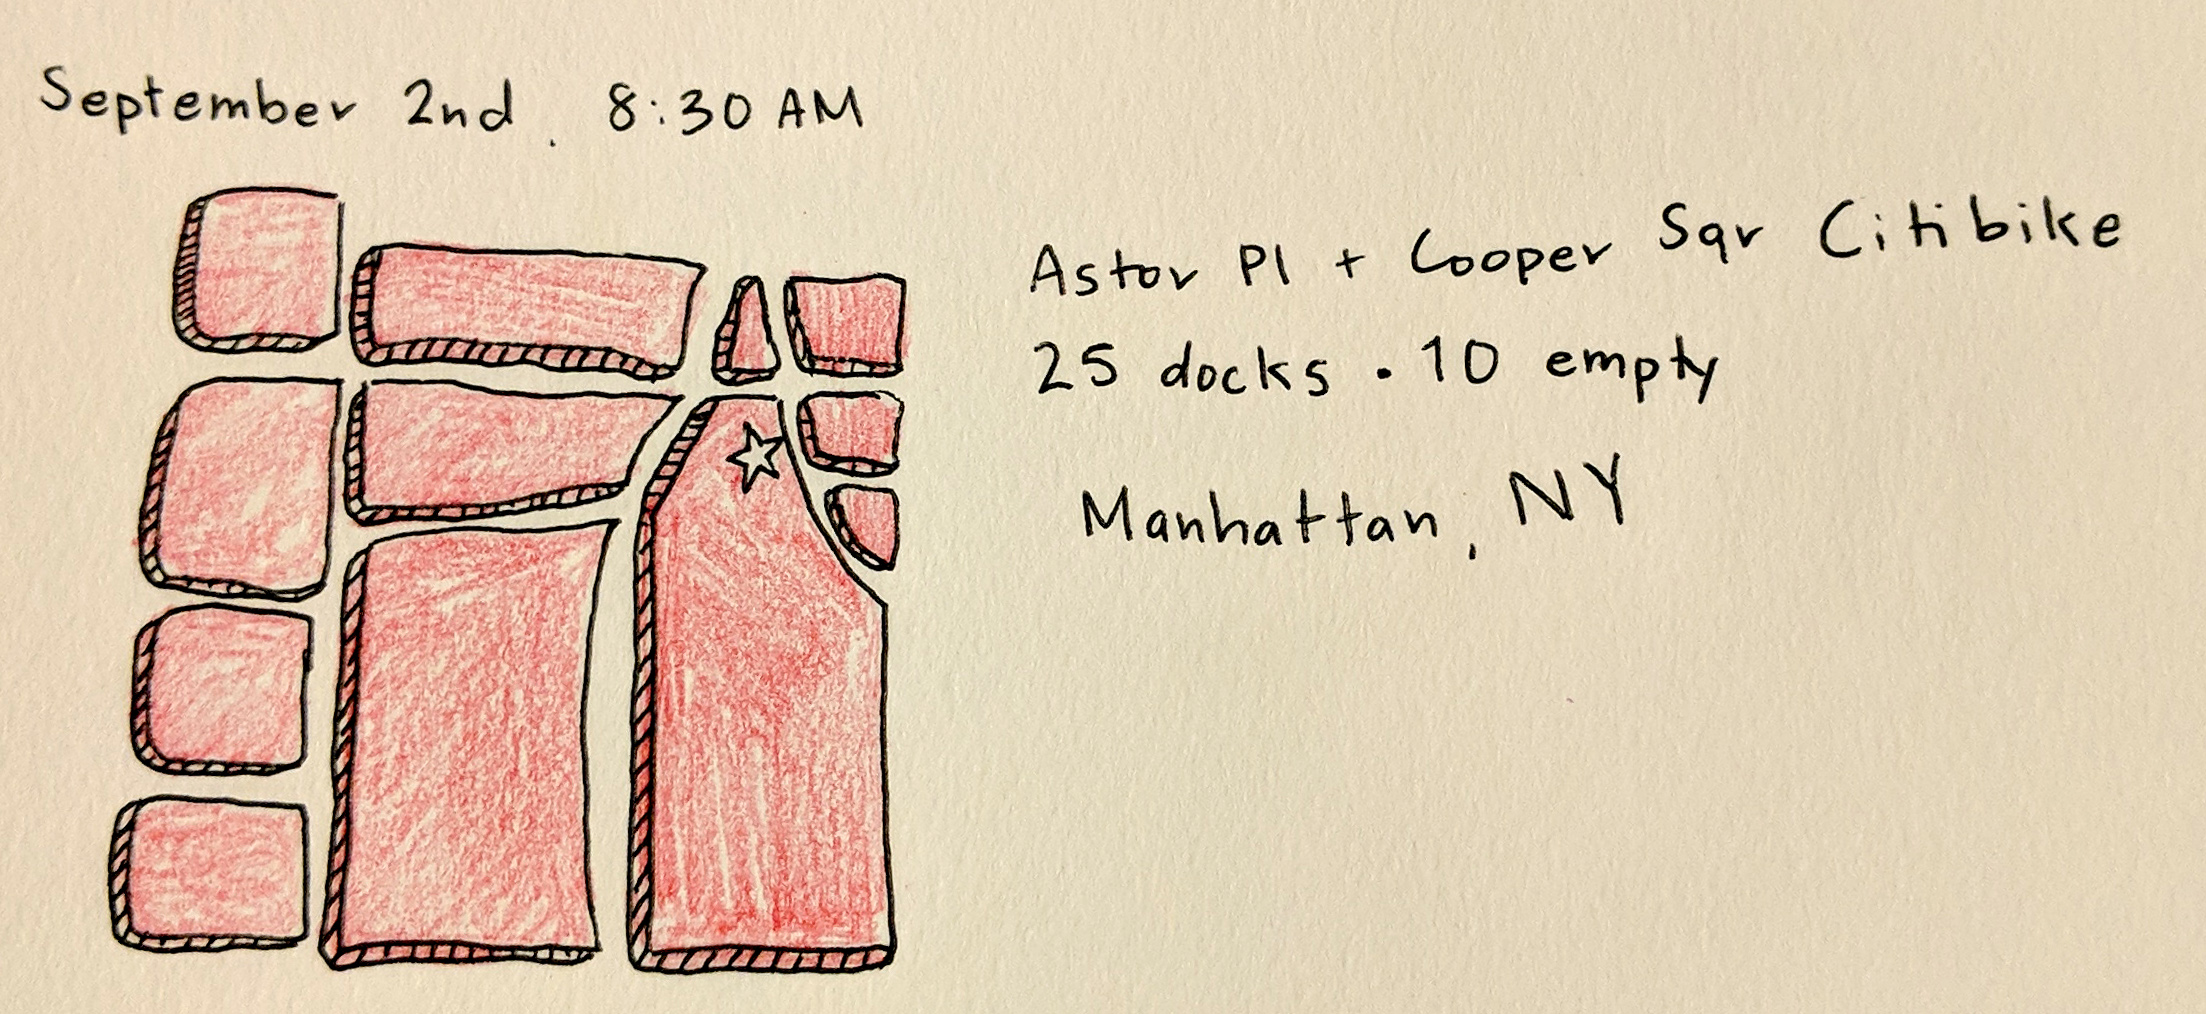 September 2nd. 8:30 AM
Astor Pl + Cooper Sqr Citibike
25 docks • 10 empty
Manhattan, NY